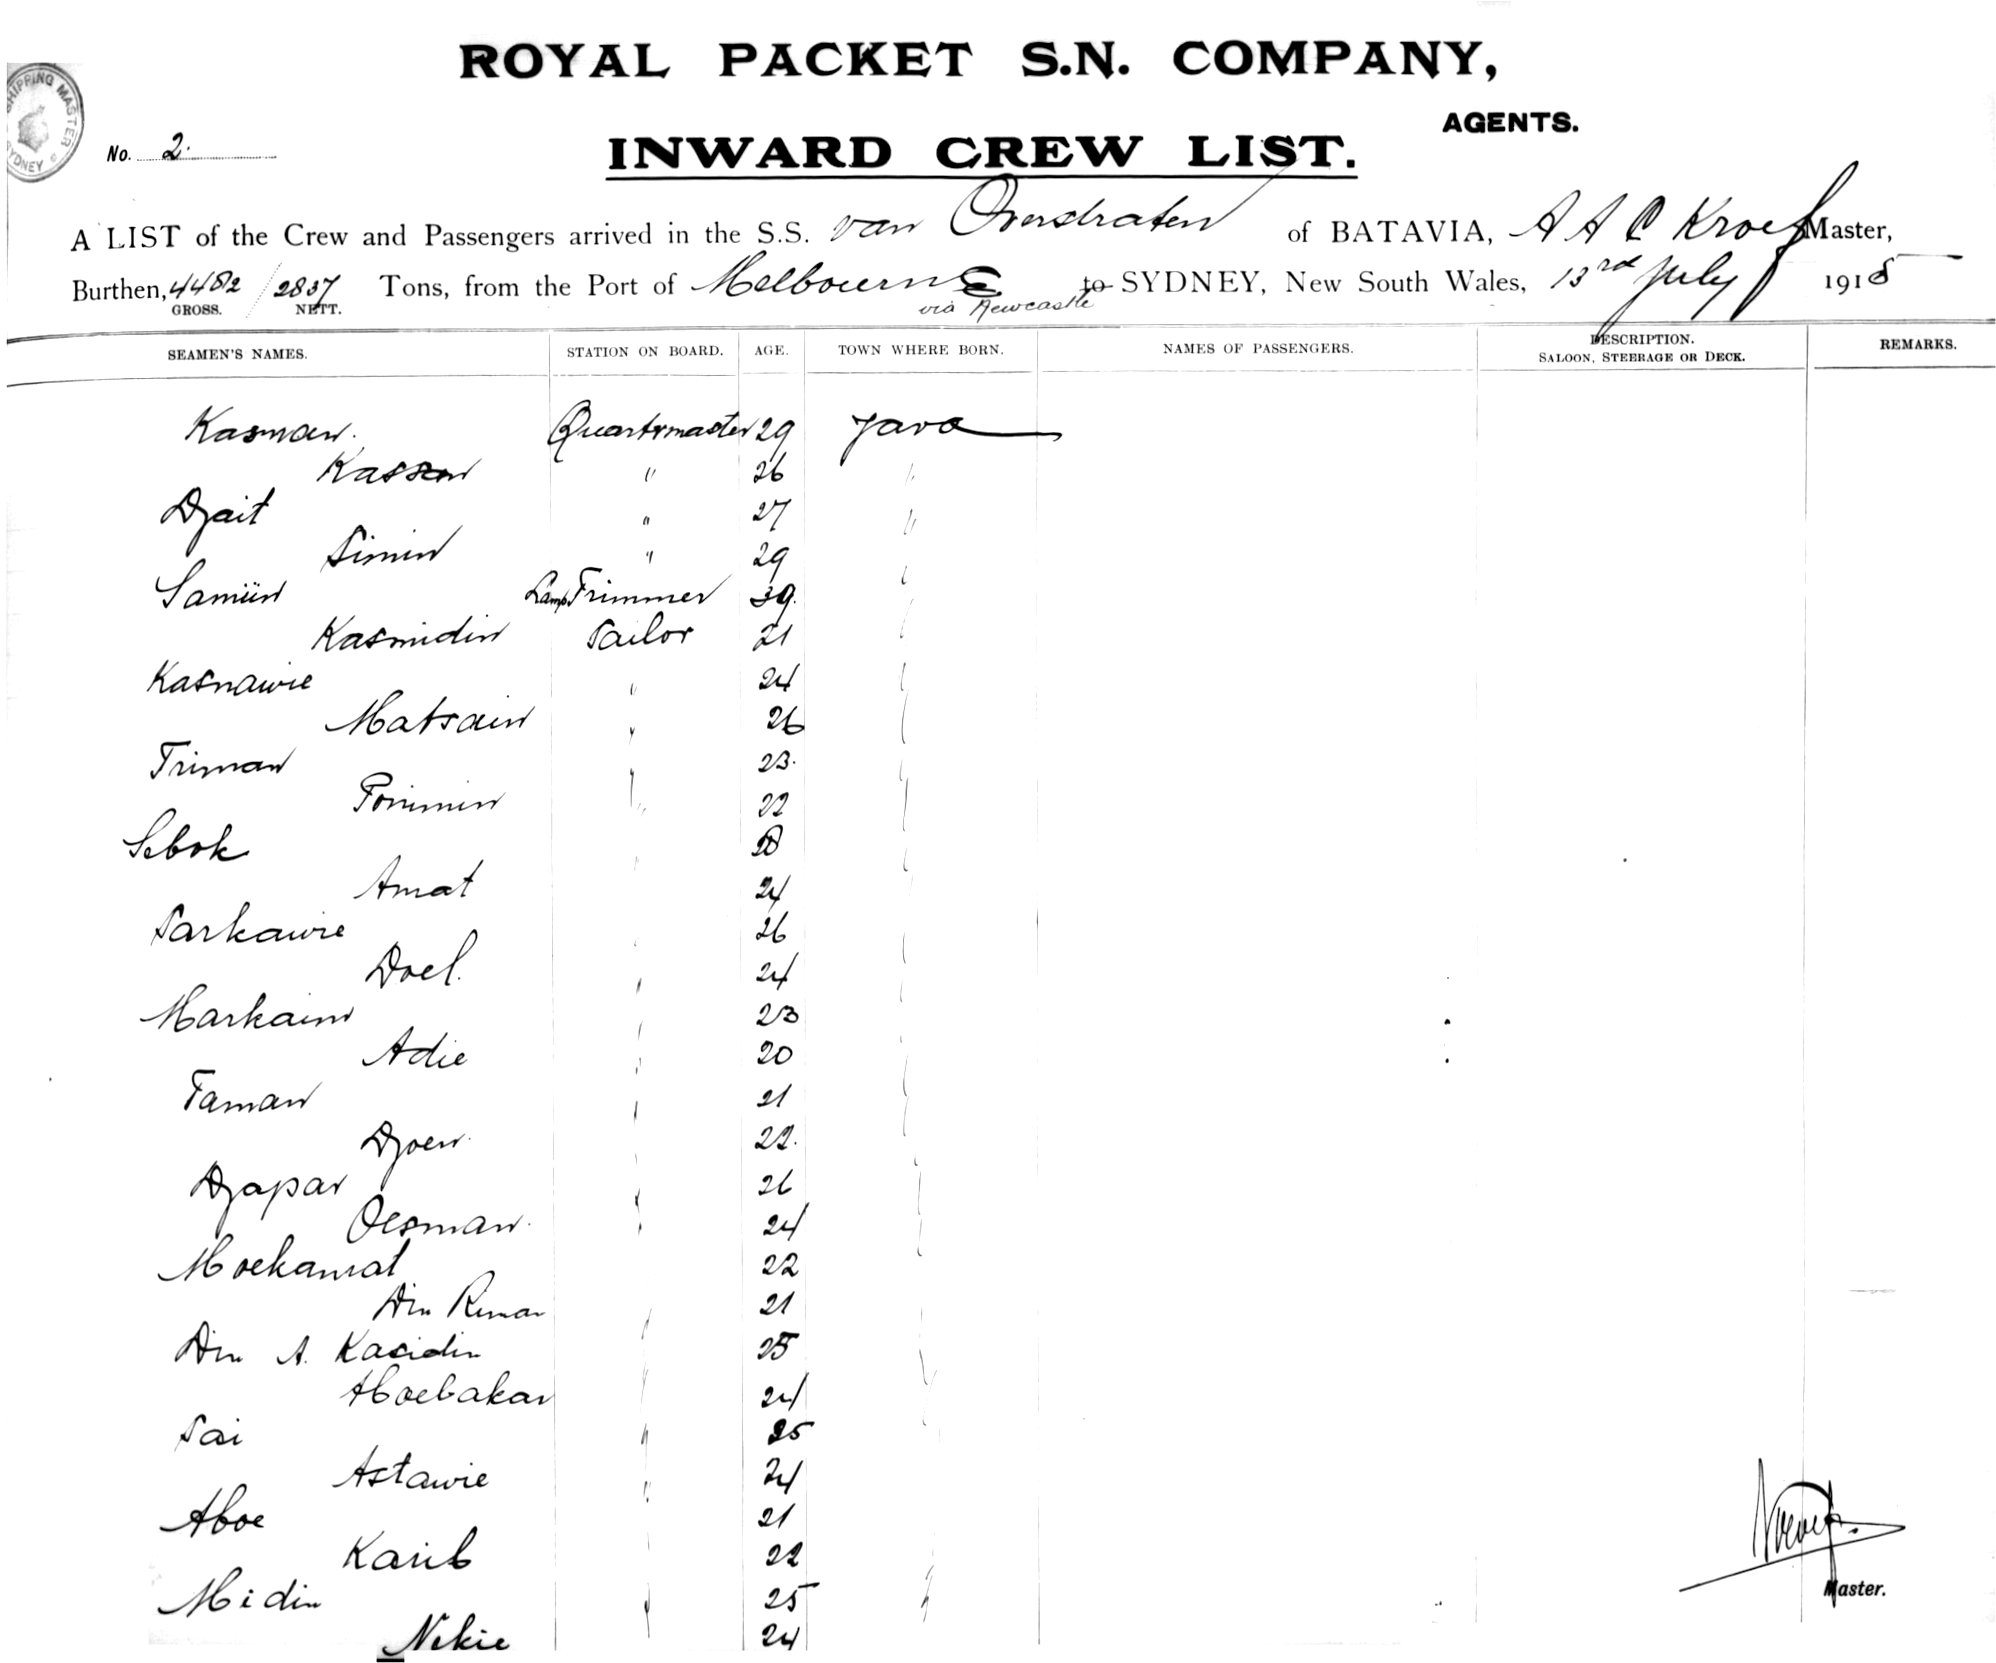 ROYAL PACKET S.N. COMPANY,
AGENTS.
SHIPPING MASTER SYDNEY
No. 2.
INWARD CREW LIST.
A LIST of the Crew and Passengers arrived in the S.S. van Overstraten of BATAVIA, A A C Kroef Master,
Burthen, 4482 / 2837 Tons, from the Port of Melbourne to SYDNEY, New South Wales, 13rd July 1918
GROSS. NETT. via Newcastle
SEAMEN'S NAMES. STATION ON BOARD. AGE. TOWN WHERE BORN. NAMES OF PASSENGERS. DESCRIPTION. SALOON, STEERAGE OR DECK. REMARKS.
Kasman. Quartrmaster 29 Java
Kassan " 26 "
Djait " 27 "
Simin " 29 "
Samiin Lamp Trimmer 39. "
Kasmidin Sailor 21 "
Kasnawie " 24 "
Matsain " 26 "
Triman " 23. "
Ponimin " 22 "
Sebok "
Amat " 24 "
Sarkawie " 26 "
Doel. " 24 "
Markaim " 23 "
Adie " 20 "
Taman " 21 "
Djoen. " 22. "
Djapar " 26 "
Oesman. " 24 "
Moekamat 22
Din Riman 21
Din A. Kasidin " 25 "
Aboebakar " 24 "
Sai " 25 "
Astawie " 24
Aboe 21
Karib 22
Midin " 25 "
Nekie 24
Kroef.
Master.